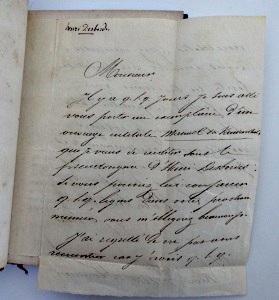 Henri Desbordes
Monsieur
Il y a qlq jours je suis allé
vous porter un exemplaire d'un
ouvrage intitulé Manuel du
que je viens de publier sous le
pseudonyme d'Henri Desbordes
Si vous pouviez lui consacrer
qlq lignes dans votre prochain
vous m'obligeriez beaucoup.
J'ai regretté de ne pas vous
rencontrer chez vous